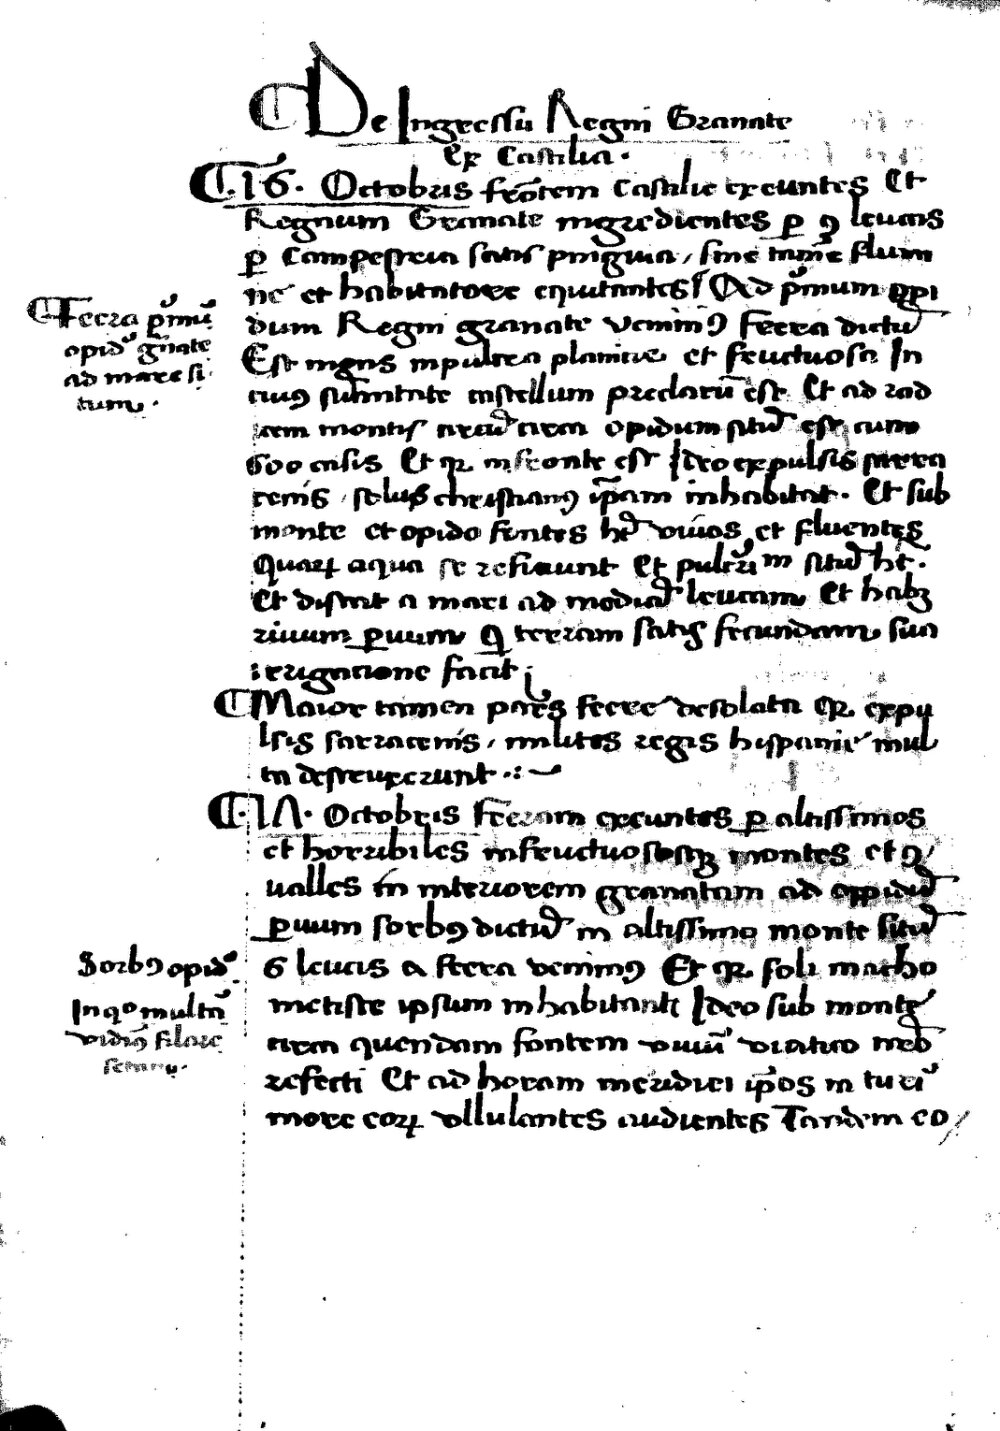 De Ingressu Regni Granate
Ex Castilia.
.16. Octobris frontem Castilie exeuntes Et
Regnum Granate ingredientes p 9 leucas
p campestria satis pinguia, sine tamen flumi
ne et habitatore equitantes Ad pimum oppi
dum Regni granate venim9 Feera dictu
Est magis in pulcra planicie et fructuosa In
cui9 sumitate castellum preclaru est Et ad rad
icem montis circa opidum situ est cum
600 casis Et qr in fronte est Ideo expulsis sarra
cenis, solus christian9 ipam inhabitat. Et sub
monte et opido fontes ht vivos et fluentes
Quaru aqua se reficiunt Et pulcrum situ ht.
Et distat a mari ad modica leucam Et habz
rivum pvum q terram satis fecundam sua
irrigacione facit
Maior tamen pars feere desolata qr expu
lsis sarracenis, milites regis hispanie mul
ta destruxerunt
.17. Octobris Feeram exeuntes p altissimos
et horribiles infructuososqz montes et 9
valles in interiorem granatam ad oppidu
pvum sorb9 dictu in altissimo monte situ
6 leucis a feera venim9 Et qr soli macho
metiste ipsum inhabitant Ideo sub monte
circa quendam fontem vivu viatico nrō
refecti Et ad horam meridiei ipos in turi
more eoru ullulantes audientes Tandem eo
Feera pimu
opidu gnate
ad mare si
tum.
Sorb9 opidu
In qo multa
vidim9 filare
setam.